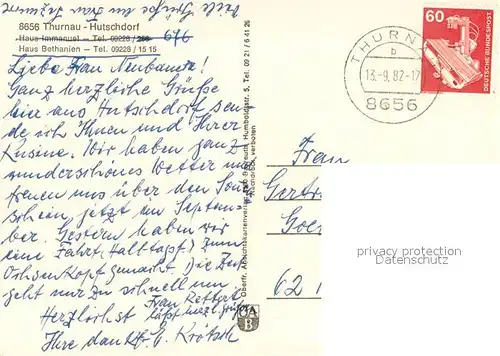 viele Grüße an Frau
8656 Thurnau - Hutschdorf
Haus Immanuel — Tel. 09228 / 286 676
Haus Bethanien — Tel. 09228 / 15 15
Liebe Frau Neubauer!
Ganz herzliche Grüße
hier aus Hutschdorf sen-
de ich Ihnen und Ihrer
Kusine. Wir haben ganz
wunderschönes Wetter und
freuen uns über den Son
schein jetzt im Septem-
ber. Gestern haben wir
eine Fahrt (Halbtags) zum
Ochsenkopf gemacht. Die Zeit
geht nur zu schnell um
Frau Rettert
Herzlichst läßt herzl. grüßen
Ihre dankb. E. Krötsch
Oberfr. Ansichtskartenverlag Bayreuth, Humboldtstr. 5, Tel. 09 21 / 6 41 26
Nachdruck verboten
OA
B
THURN
b
13.-9. 82-17
8656
60
DEUTSCHE BUNDESPOST
Frau
Gertr
Goe
62
privacy protection
Datenschutz